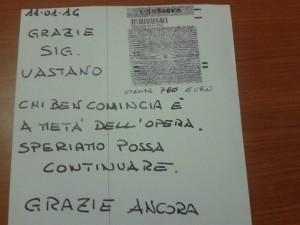 11.01.16
GRAZIE
SIG.
VASTANO
780 EURO
CHI BEN COMINCIA È
A METÀ DELL'OPERA.
SPERIAMO POSSA
CONTINUARE.
GRAZIE ANCORA